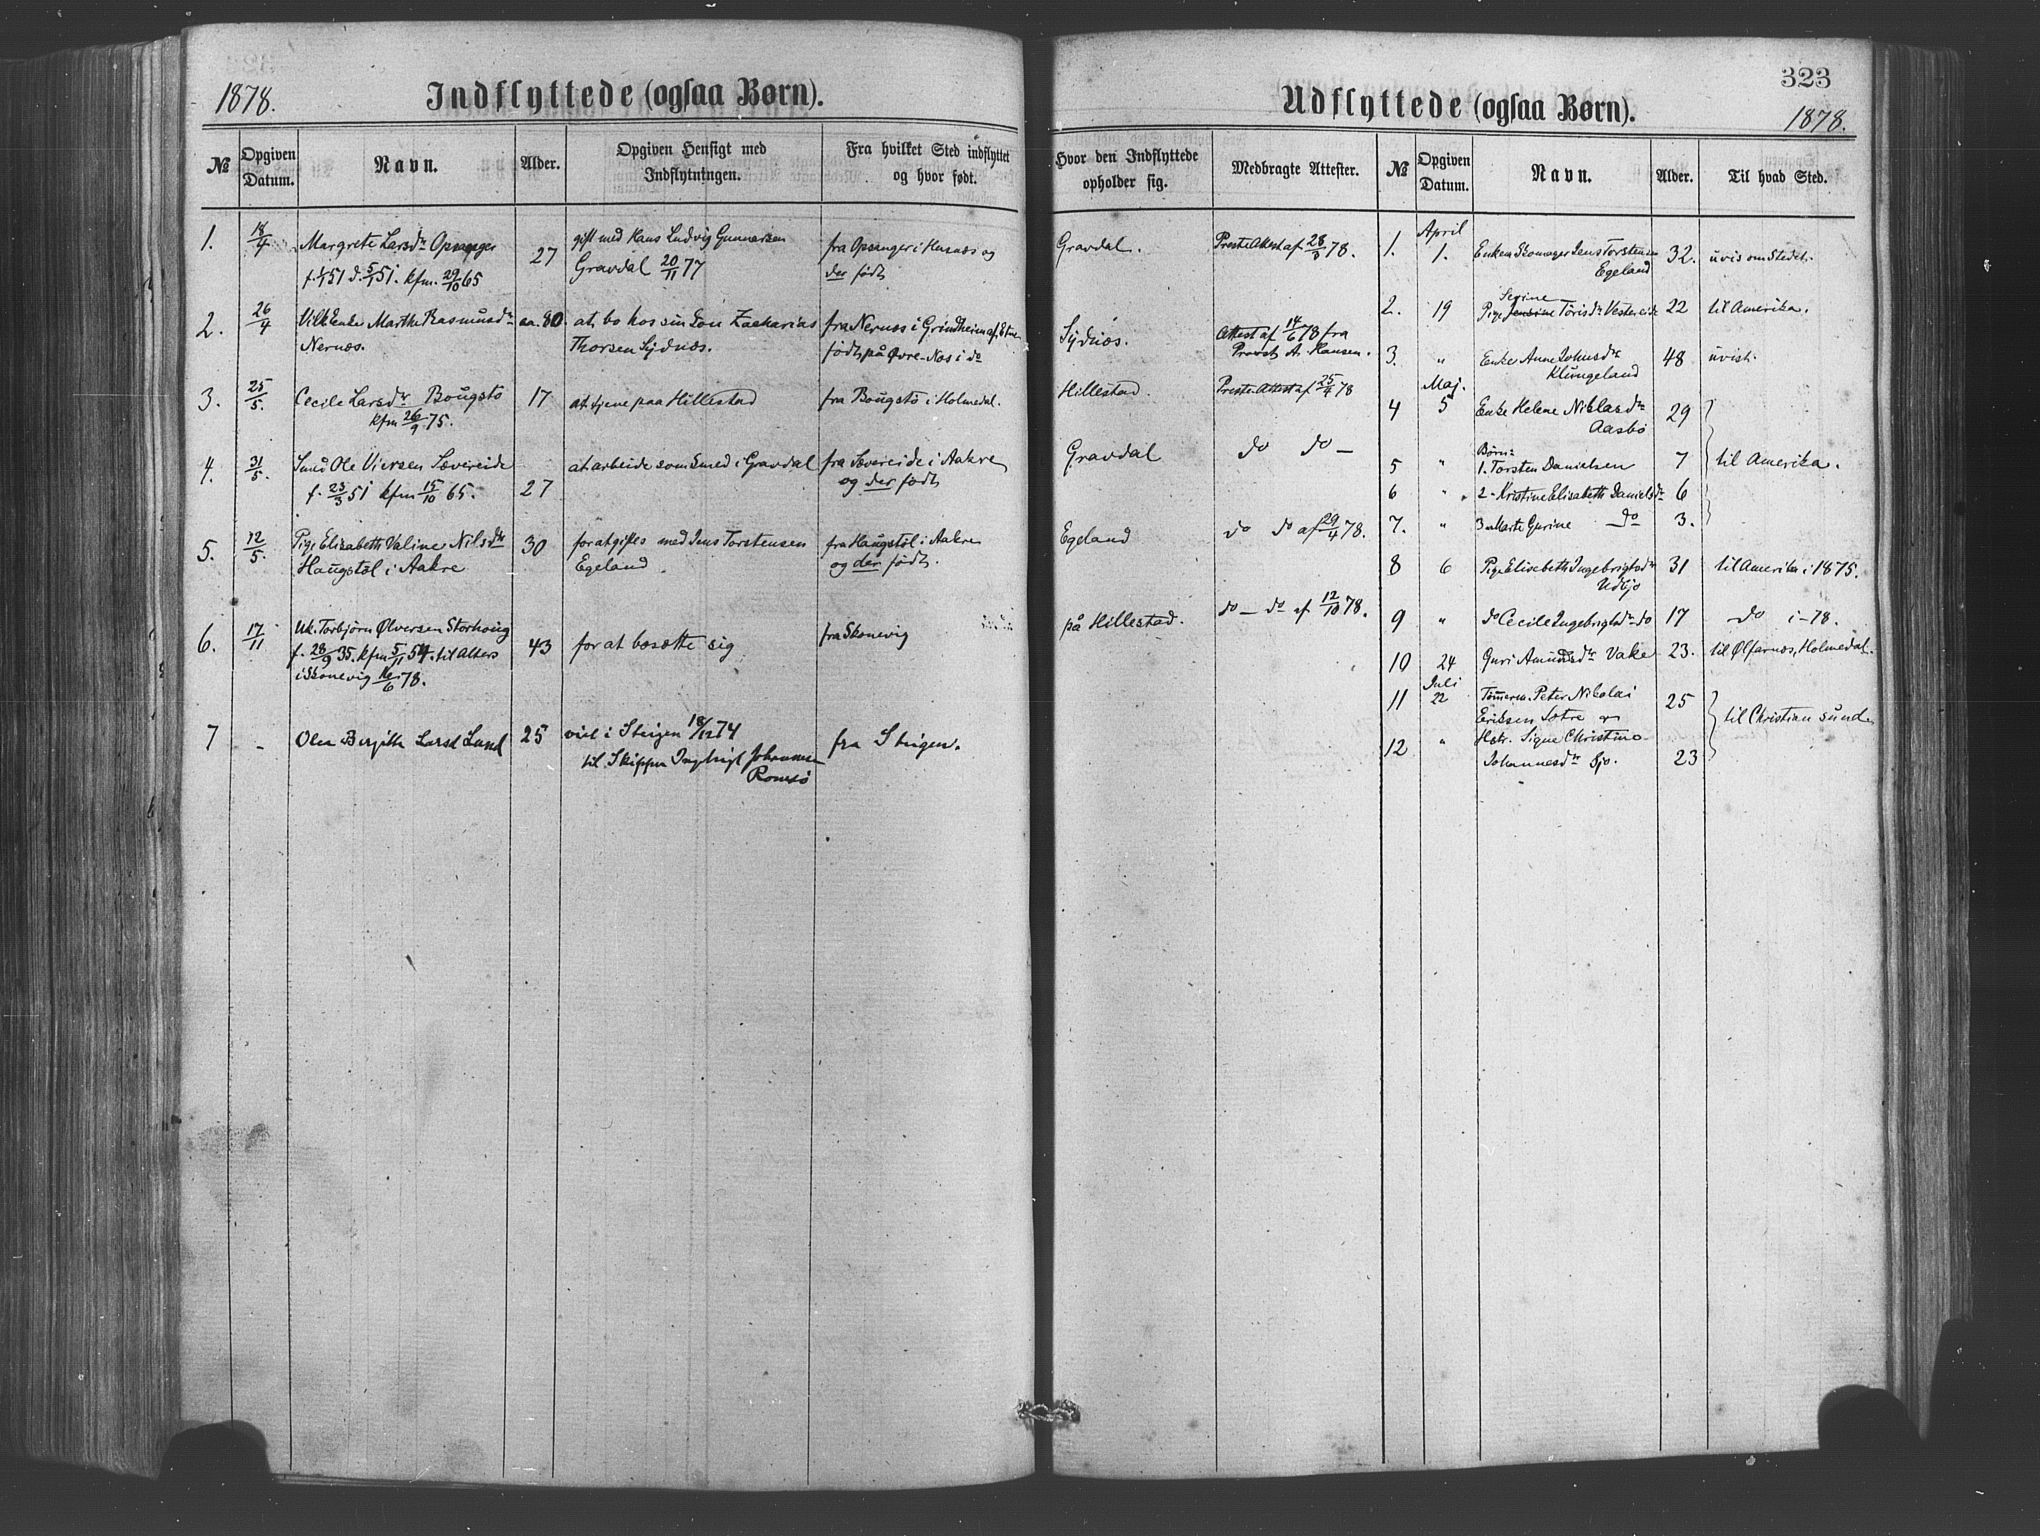 1878.
Indflyttede (ogsaa Børn).
№
Opgiven Datum.
Navn.
Alder.
Opgiven Hensigt med Indflytningen.
Fra hvilket Sted indflyttet og hvor født.
1. 18/4 Margrete Larsdr Opsanger 27 gift med Hans Ludvig Gunnarsen fra Opsanger i Husnæs og
f. 1/1 51 d. 5/1 51. kfm. 29/10 65 Gravdal 20/11 77 der født
2. 26/4 Vilk Enke Marthe Rasmusdr aa. 80. at bo hos sin Søn Zacharias fra Nernæs i Grindheim af Etne
Nernæs. Thorsen Sydnæs. født på Øvre-Næs i do
3. 25/5. Cecile Larsdr Bougstø 17 at tjene paa Hillestad fra Bougstø i Holmedal.
kfm 26/9 75.
4. 31/5. Smed Ole Viersen Sævereide at arbeide som Smed i Gravdal fra Sævereide i Aakre
f. 23/3 51 kfm 15/10 65. 27 og der født
5. 12/5. Pige Elisabeth Valine Nilsdr 30 for at giftes med Jens Torstensen fra Haugstøl i Aakre
Haugstøl i Aakre Egeland og der født.
6. 17/11 Uk. Torbjørn Ølversen Storhoug 43 for at bosætte sig fra Skonevig
f. 28/9 35. kfm 5/11 54. til Alters
i Skonevig 16/6 78.
7 - Olea Bergitte Larsd Lund 25 viet i Steigen 18/12 74 fra Steigen.
til Skipper Ingbrigt Johannesen
Romsø
323
Udflyttede (ogsaa Børn).
1878.
Hvor den Indflyttede opholder sig.
Medbragte Attester.
№
Opgiven Datum.
Navn.
Alder.
Til hvad Sted.
Gravdal. Preste Attest af 28/3 78.
Sydnæs. Attest af 14/6 78 fra
Provst A. Hansen.
Hillestad Preste Attest af 25/4 78
Gravdal do do -
Egeland do do af 29/4 78.
på Hillestad. do - do af 12/10 78.
April
1. 1. Enkem Skomager Jens Torstensen 32. uvis om Stedet.
Egeland
Serine
2. 19 Pige Jensine Tørisdr Vestereide 22 til Amerika.
3. " Enke Anne Johnsdr 48 uvist.
Klungeland
Maj.
4 5 Enke Helene Niklasdr 29
Aasbø
Børn:
5 " 1. Torsten Danielsen 7 til Amerika.
6 " 2 - Kristine Elisabeth Danielsdr 6
7. " 3 Marte Gurine do 3.
8 6 Pige Elisabeth Ingebrigtsdr 31 til Amerika i 1875.
Udbjo
9 " do Cecile Ingebrigtsdr do 17 - do i -78.
10 24 Guri Amundsdr Vake 23. til Ølfarnæs, Holmedal.
Juli
11 22 Tømerm. Peter Nikolai 25
Eriksen Sætre og til Christiansund
12 " Hstr. Signe Christine
Johannesdr Bjo. 23